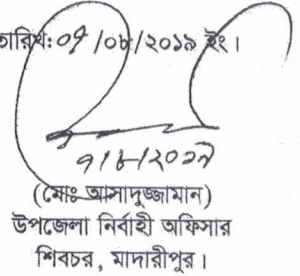 তারিখ: ০৭/০৮/২০১৯ ইং।
৭/৮/২০১৯
(মোঃ আসাদুজ্জামান)
উপজেলা নির্বাহী অফিসার
শিবচর, মাদারীপুর।